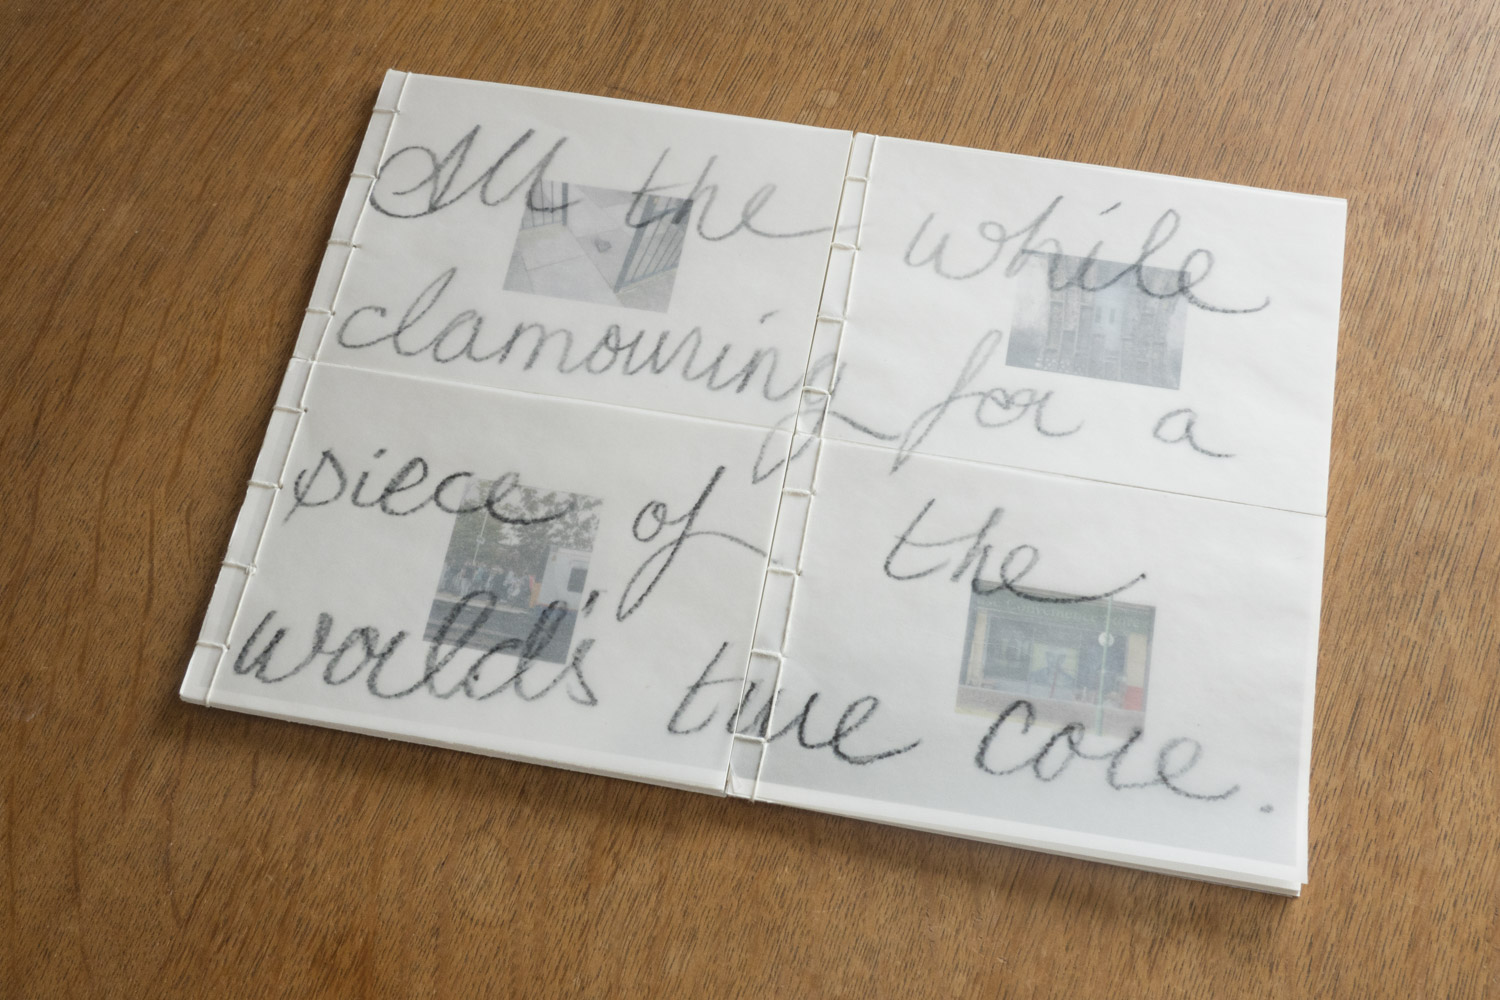 All the while
clamouring for a
piece of the
world's true core.